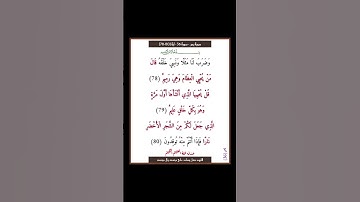 وَضَرَبَ لَنَا مَثَلًا وَنَسِيَ خَلْقَهُ قَالَ
مَنْ يُحْيِي الْعِظَامَ وَهِيَ رَمِيمٌ (78)
قُلْ يُحْيِيهَا الَّذِي أَنْشَأَهَا أَوَّلَ مَرَّةٍ
وَهُوَ بِكُلِّ خَلْقٍ عَلِيمٌ (79)
الَّذِي جَعَلَ لَكُمْ مِنَ الشَّجَرِ الْأَخْضَرِ
نَارًا فَإِذَا أَنْتُمْ مِنْهُ تُوقِدُونَ (80)